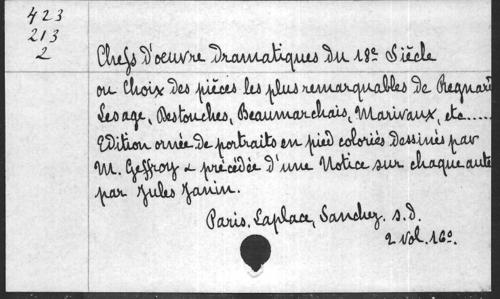 423
213
2
Chefs d'oeuvre dramatiques du 18e Siècle
ou Choix des pièces les plus remarquables de Regnard
Lesage, Destouches, Beaumarchais, Marivaux, etc.....
Edition ornée de portraits en pied coloriés dessinés par
M. Geffroy & précédée d'une Notice sur chaque aute
par Jules Janin.
Paris. Laplace, Sanchez. s.d.
2 vol. 16o.